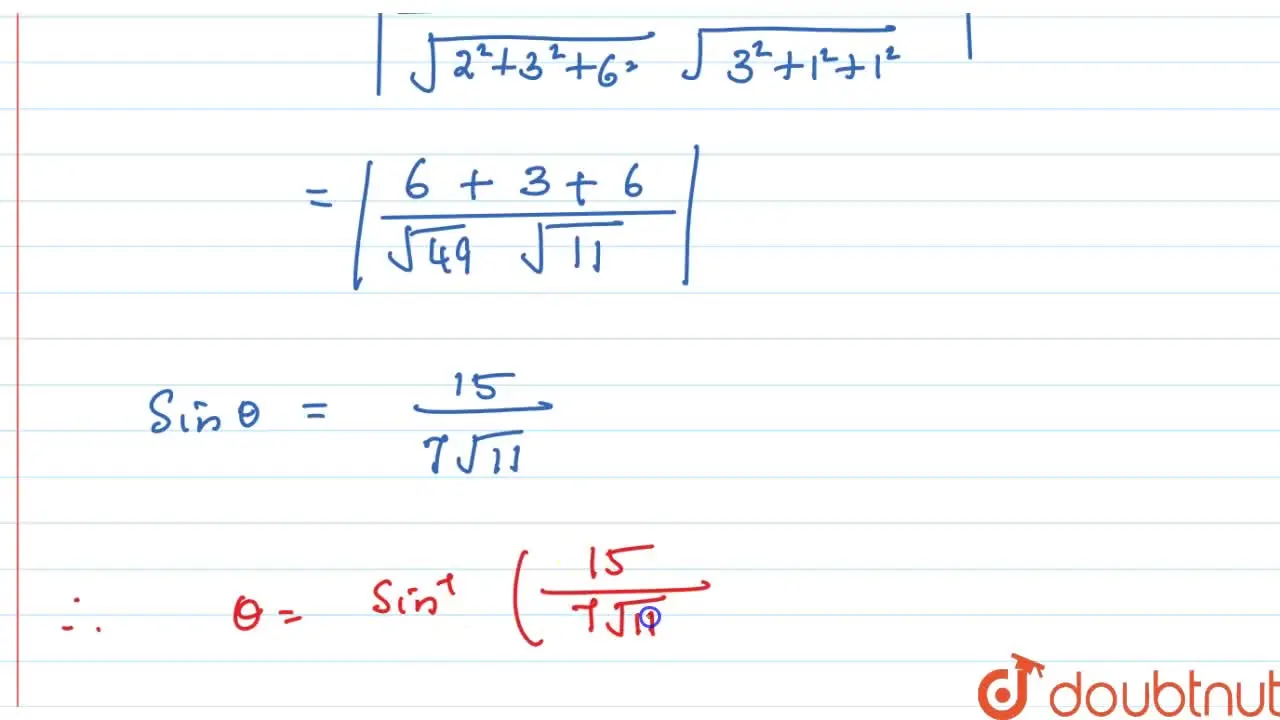 √(2²+3²+6²) √(3²+1²+1²)
= | (6 + 3 + 6) / (√49 √11) |
Sin θ = 15 / 7√11
∴ θ = Sin⁻¹ ( 15 / 7√11
doubtnut